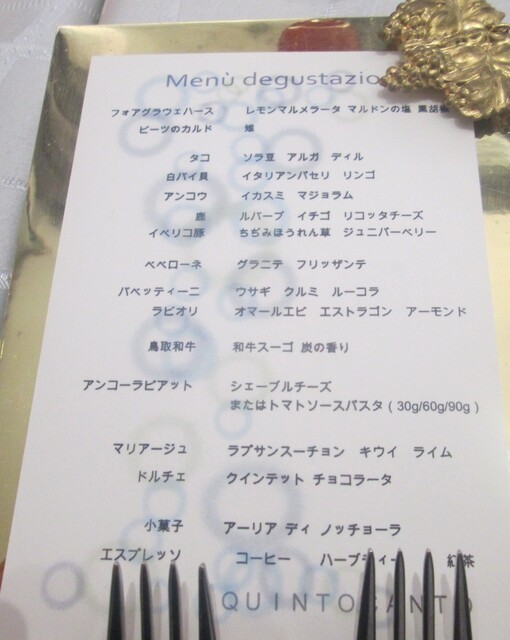 Menù degustazio
フォアグラウェハース レモンマルメラータ マルドンの塩 黒胡椒
ビーツのカルド 雉
タコ ソラ豆 アルガ ディル
白バイ貝 イタリアンパセリ リンゴ
アンコウ イカスミ マジョラム
鹿 ルバーブ イチゴ リコッタチーズ
イベリコ豚 ちぢみほうれん草 ジュニパーベリー
ペペローネ グラニテ フリッザンテ
バベッティーニ ウサギ クルミ ルーコラ
ラビオリ オマールエビ エストラゴン アーモンド
鳥取和牛 和牛スーゴ 炭の香り
アンコーラピアット シェーブルチーズ
またはトマトソースパスタ（30g/60g/90g）
マリアージュ ラプサンスーチョン キウイ ライム
ドルチェ クインテット チョコラータ
小菓子 アーリア ディ ノッチョーラ
エスプレッソ コーヒー ハーブティー 紅茶
QUINTOCANTO